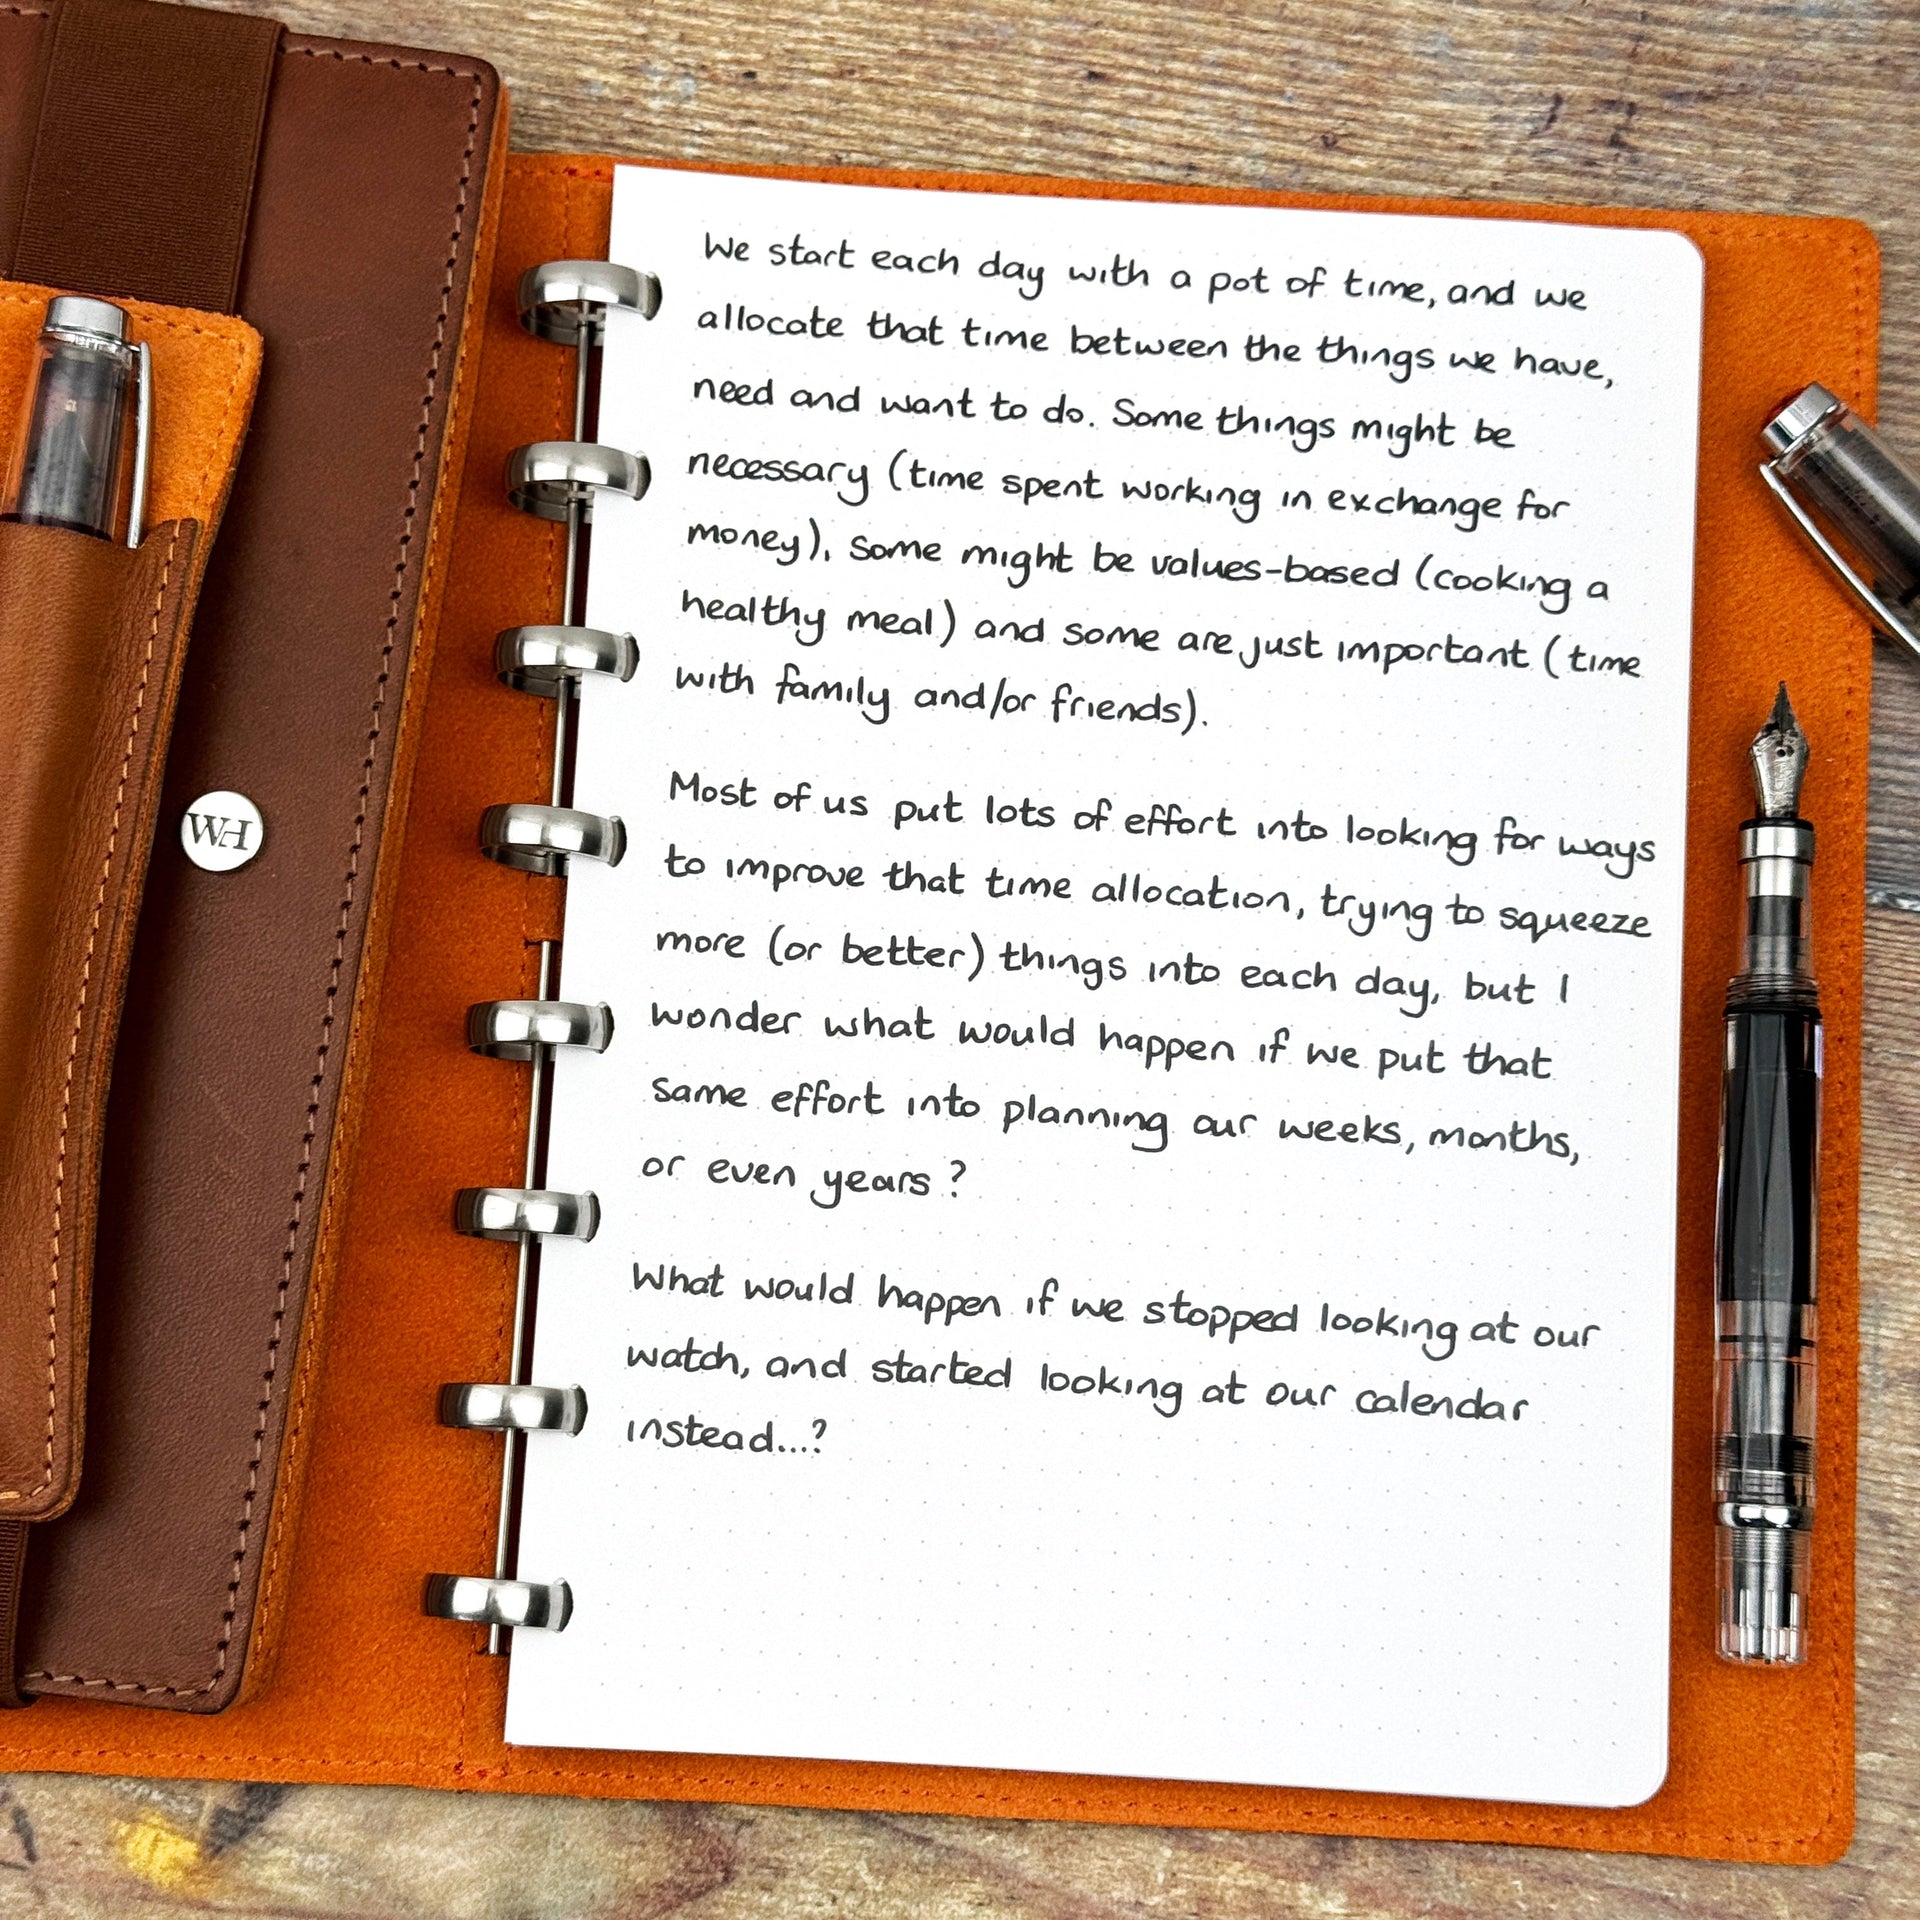 WH
We start each day with a pot of time, and we
allocate that time between the things we have,
need and want to do. Some things might be
necessary (time spent working in exchange for
money), some might be values-based (cooking a
healthy meal) and some are just important (time
with family and/or friends).
Most of us put lots of effort into looking for ways
to improve that time allocation, trying to squeeze
more (or better) things into each day, but I
wonder what would happen if we put that
same effort into planning our weeks, months,
or even years?
What would happen if we stopped looking at our
watch, and started looking at our calendar
instead...?